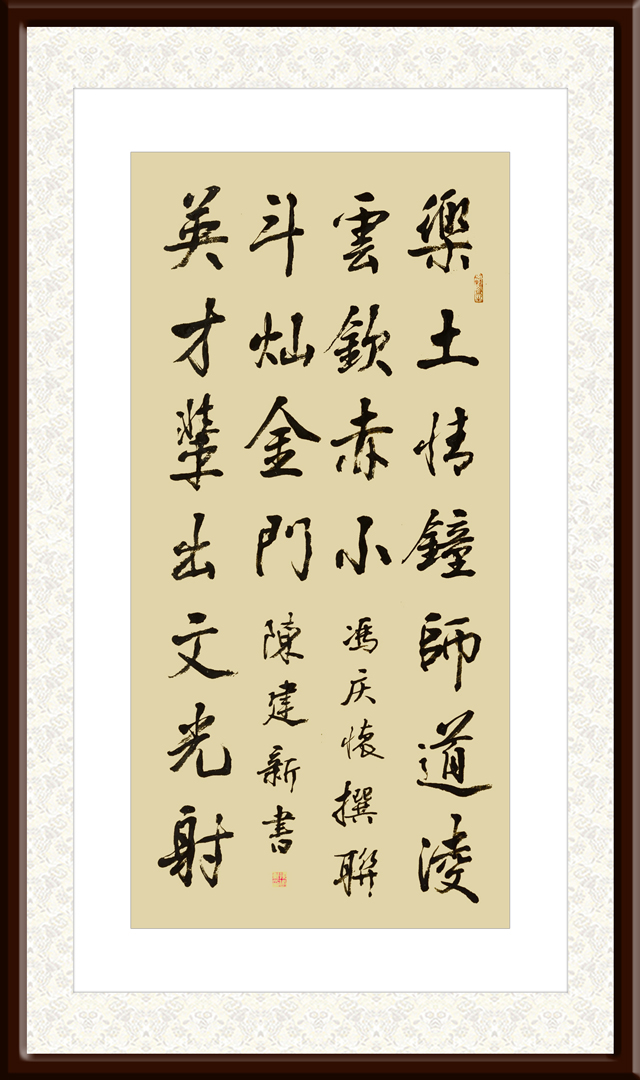 樂土情鐘師道淩
雲欽赤小
馮庆懷撰聯
英才輩出文光射
斗灿金門
陳建新書